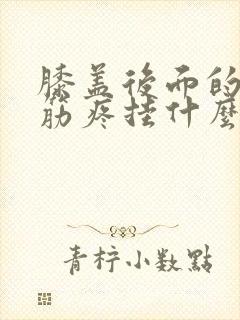 膝盖後面的
筋疼挂什麼
青柠小数點